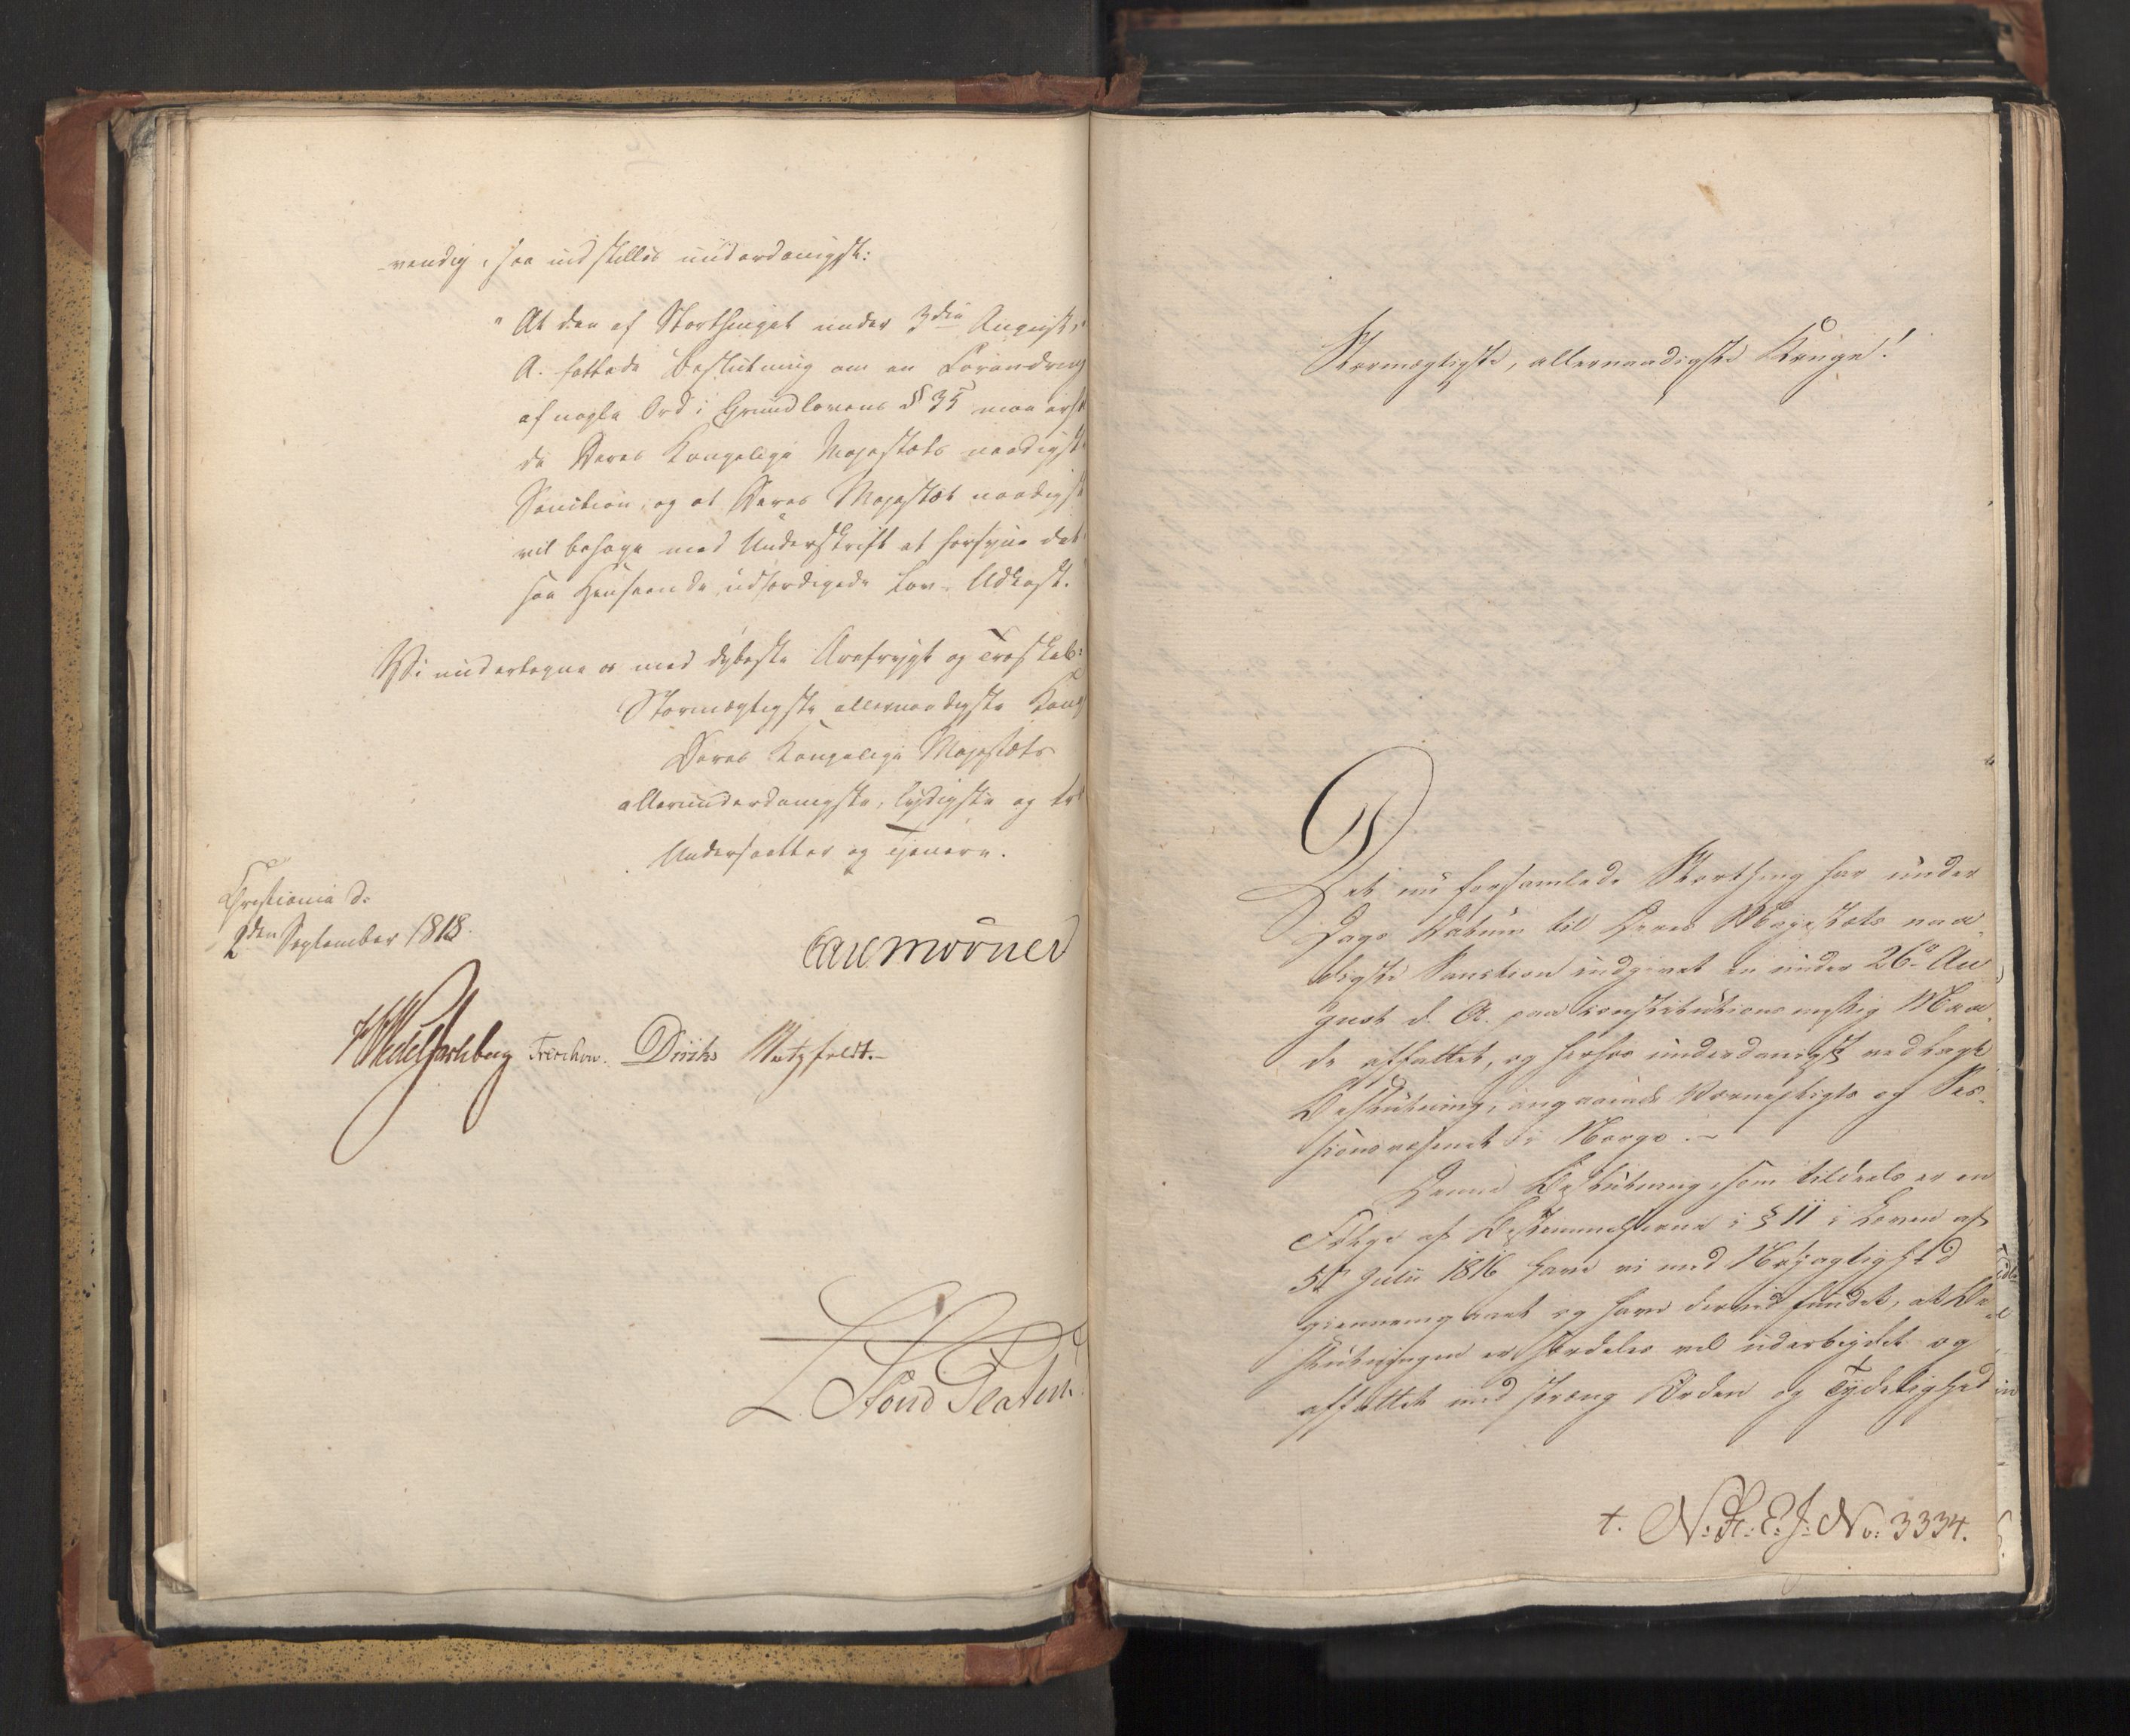 -vendig, saa indstilles underdanigst:
"At den af Storthinget under 3die August d.
A. fattede Beslutning om en Forandring
af nogle Ord i Grundlovens § 35 maa erhol
de Deres Kongelige Majestæts naadigste
Sanction, og at Deres Majestæt naadigst
vil behage med Underskrift at forsyne det i
saa Henseende udfærdigede Lov-Udkast.
Vi undertegne os med dybeste Ærefrygt og Troskab:
Stormægtigste allernaadigste Konge
Deres Kongelige Majestæts
allerunderdanigste, lydigste og tro
Undersaatter og Tjenere.
Christiania d.
2den September 1818.
Carl Mörner
HWedelJarlsberg Treschow. Diriks Motzfeldt.-
L. Stoud Platou
Stormægtigste, allernaadigste Konge!
Det nu forsamlede Storthing har under
Dags Datum til Deres Majestæts naa-
digste Sanction indgivet en under 26de Au
gust d. A. paa constitutionsmæssig Maa-
de affattet, og herhos underdanigst vedlagt
Beslutning, angaaende Værnepligts og Ses-
sionsvæsenet i Norge.-
Denne Beslutning, som tildeels er en
Følge af Bestemmelserne i § 11 i Loven af
5te Julii 1816 have vi med Nøjagtighed
giennemgaaet og have derved fundet, at Be-
slutningen er særdeles vel udarbejdet og
affattet med streng Orden og Tydelighed
t. N: R: E: J: No: 3334.